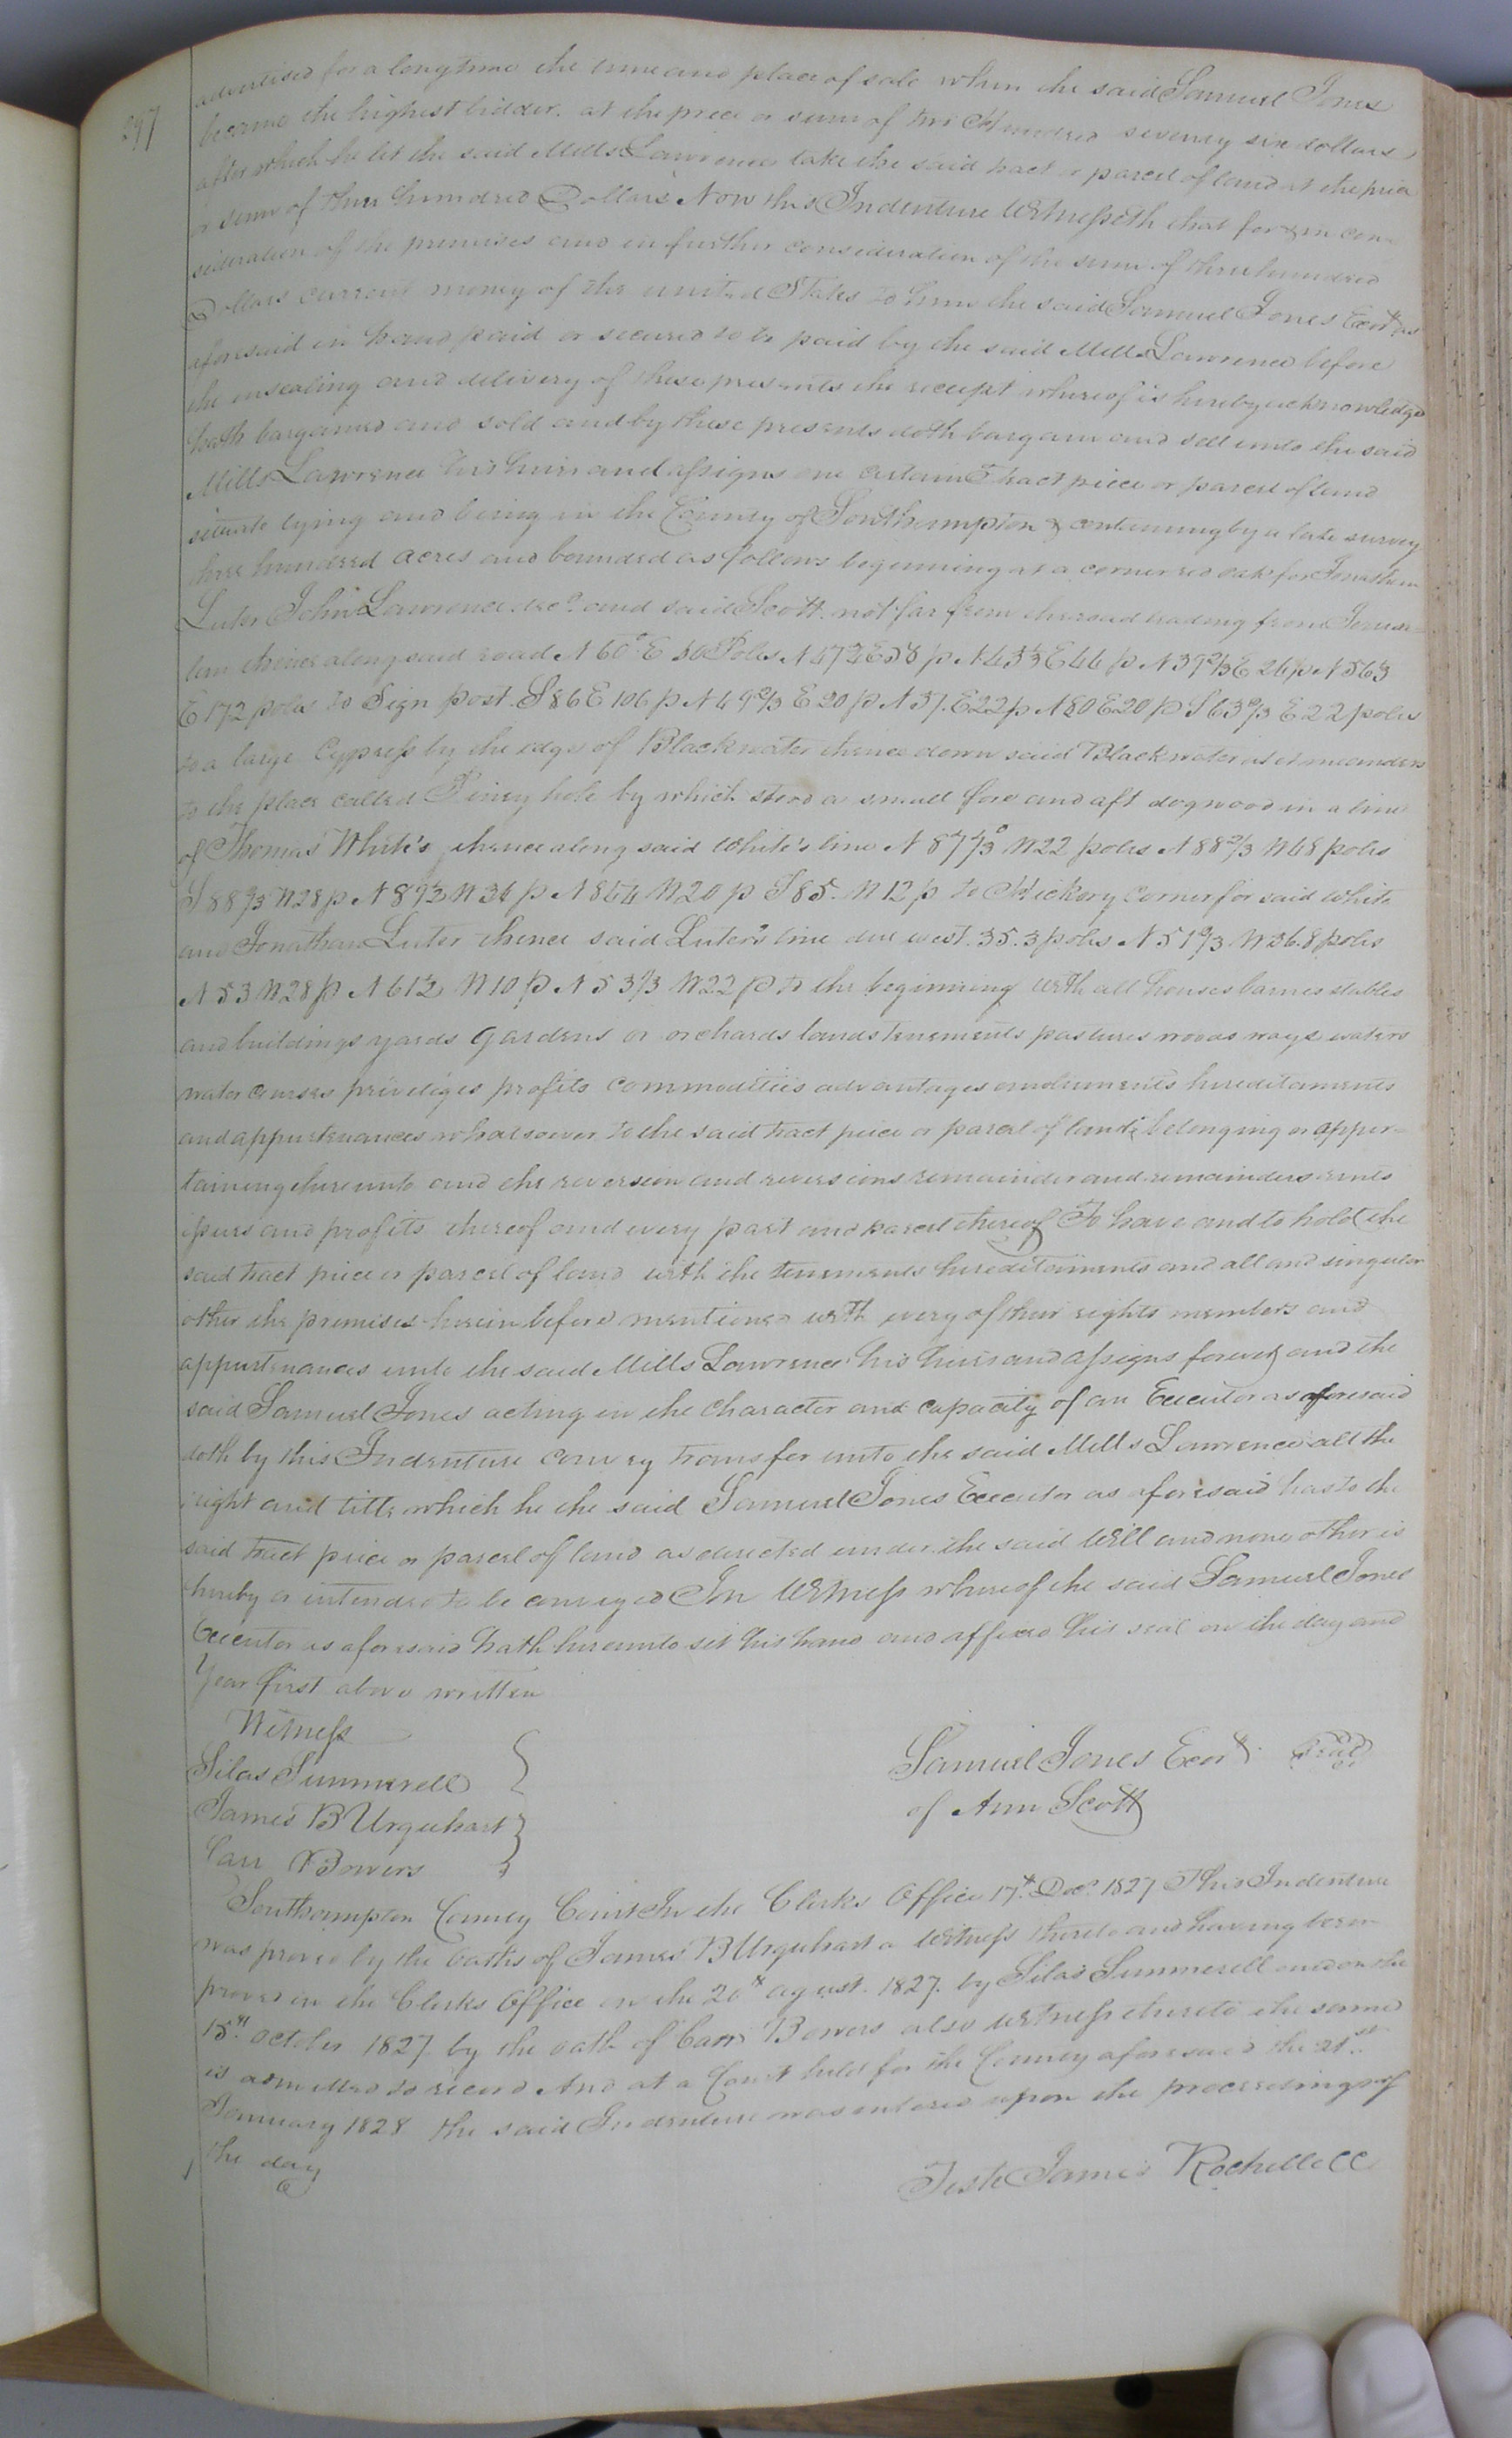 297
advertised for a longtime the time and place of sale when the said Samuel Jones
became the highest bidder. at the price or sum of two Hundred seventy six dollars
after which he let the said Mills Lawrence take the said tract or parcel of land at the price
or sum of three hundred Dollars Now this Indenture Witnesseth that for & in con-
sideration of the premises and in further consideration of the sum of three hundred
Dollars current money of the united States to him the said Samuel Jones Exor as
aforesaid in hand paid or secured to be paid by the said Mills Lawrence before
the ensealing and delivery of these presents the receipt whereof is hereby acknowledge
hath bargained and sold and by these presents doth bargain and sell unto the said
Mills Lawrence his heirs and assigns one certain Tract piece or parcel of land
situate lying and being in the County of Southampton & containing by a late survey
three hundred acres and bounded as follows beginning at a corner red oak for Jonathan
Luter John Lawrence decd. and said Scott. not far from the road leading from Jerusa-
lem thence along said road N 60° E 50 Poles N 47½ E 58 p N 43⅓ E 44 p N 39⅔ E 26 p N 56⅓
E 172 poles to Sign post. S 86 E 106 p N 49⅔ E 20 p N 37. E 22 p N 80 E 20 p S 63⅔ E 22 poles
to a large Cypress by the edge of Blackwater thence down said Blackwater as it meanders
to the place called Piney hole by which stood a small fore and aft dogwood in a line
of Thomas White's thence along said White's line N 87⅓° W 22 poles N 88⅔ W 48 poles
S 88⅔ W 28 p N 89½ W 34 p N 86¼ W 20 p S 85. W 12 p to Hickory Corner for said White
and Jonathan Luter thence said Luter's line due west. 35.3 poles N 51⅔ W 36.8 poles
N 53 W 28 p N 61½ W 10 p N 53⅓ W 22 p to the beginning With all houses barnes stables
and buildings yards Gardens or orchards lands tenements pastures woods ways waters
water courses priviliges profits commodities advantages emoliments hereditaments
and appurtenances whatsoever to the said tract piece or parcel of land; belonging or apper-
taining thereunto and the reversion and reversions remainder and remainders rents
issues and profits thereof and every part and parcel thereof To have and to hold the
said tract piece or parcel of land with the tenements hereditaments and all and singular
other the premises herein before mentioned with every of their rights members and
appurtenances unto the said Mills Lawrence his heirs and assigns forever, and the
said Samuel Jones acting in the Character and capacity of an Executor as aforesaid
doth by this Indenture convey transfer unto the said Mills Lawrence all the
right and title which he the said Samuel Jones Executor as aforesaid has to the
said tract piece or parcel of land as directed under the said Will and none other is
hereby or intended to be conveyed In Witness whereof the said Samuel Jones
Executor as aforesaid hath hereunto set his hand and affixed his seal on the day and
Year first above written
Witness
Silas Summerell
James B Urquhart
Carr Bowers
Samuel Jones Exor Seal
of Ann Scott
Southampton County Court In the Clerks Office 17th. Decr. 1827 This Indenture
was proved by the oaths of James B Urquhart a Witness thereto and having been
proved in the Clerks Office on the 20th agust. 1827. by Silas Summerell and on the
15th. october 1827 by the oath of Carr Bowers also Witness thereto the same
is admitted to record And at a Court held for the County aforesaid the 21st.
January 1828 the said Indenture was entered upon the proceedings of
the day
Teste James Rochelle CC